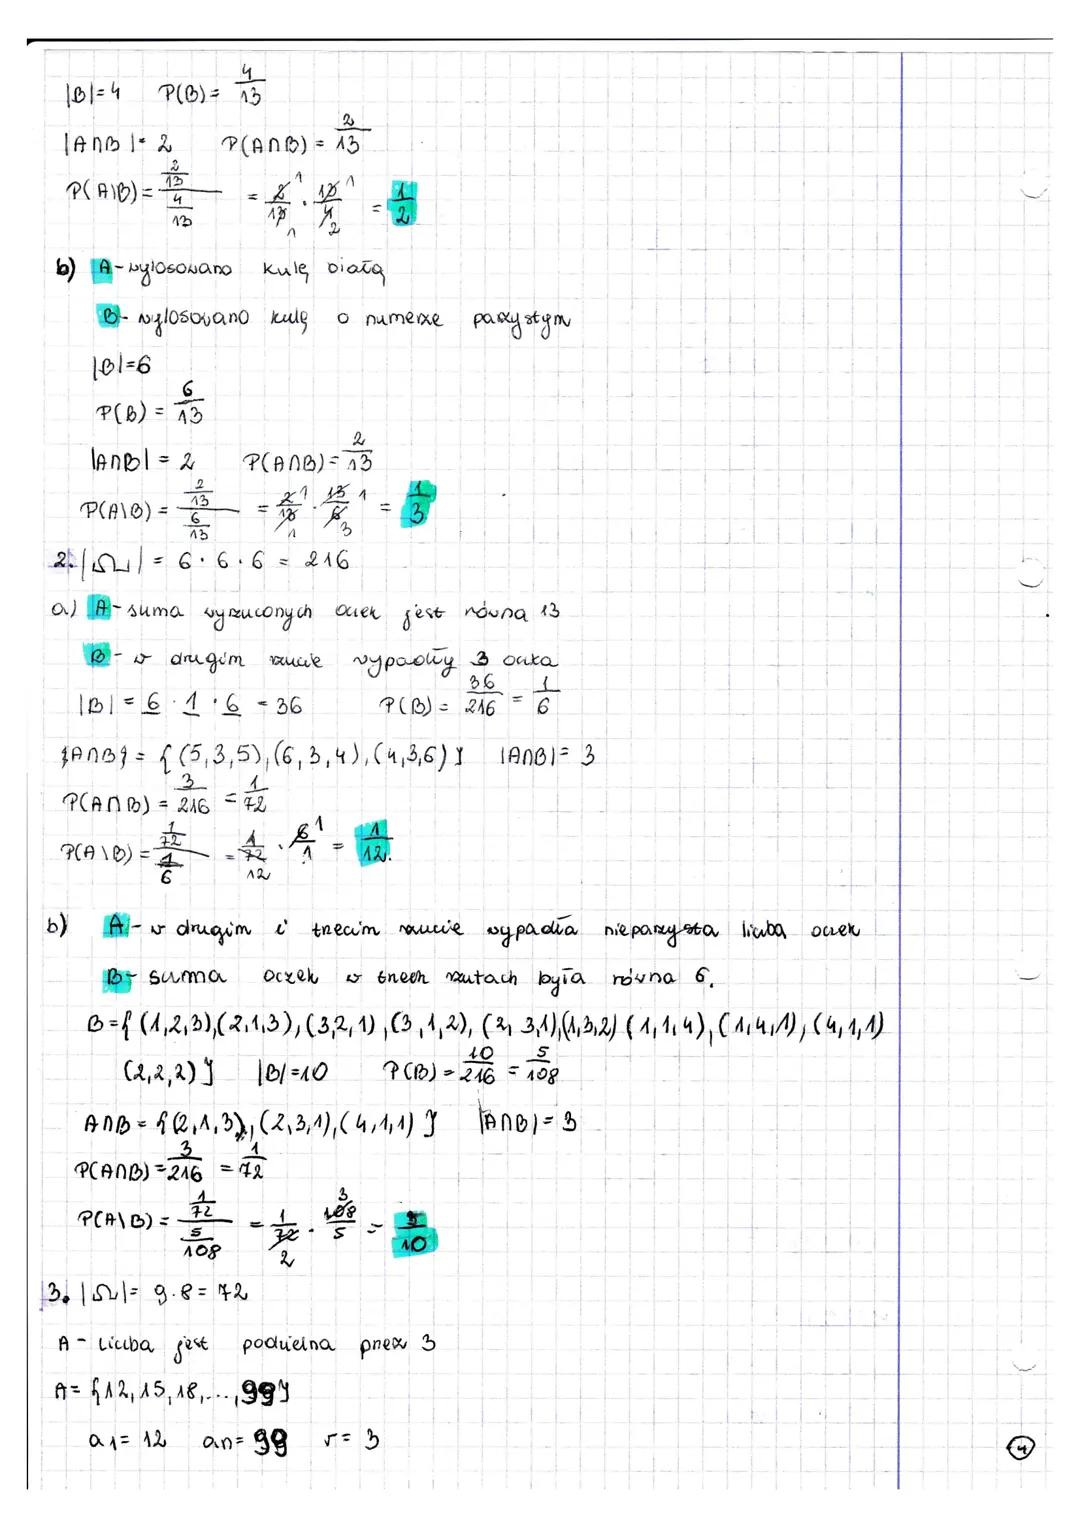 |B|=4 P(B)= 4/13
|A∩B|= 2 P(A∩B) = 2/13
P(A\B)= (2/13)/(4/13) = 2/13 · 13/4 = 1/2
b) A - wylosowano kulę białą
B - wylosowano kulę o numerze parzystym
|B|=6
P(B) = 6/13
|A∩B| = 2 P(A∩B)= 2/13
P(A\B) = (2/13)/(6/13) = 2/13 · 13/6 = 1/3
2. |Ω| = 6 · 6 · 6 = 216
a) A - suma wyrzuconych oczek jest równa 13
B - w drugim rzucie wypadły 3 oczka
|B| = 6 · 1 · 6 = 36 P(B) = 36/216 = 1/6
{A∩B} = { (5,3,5), (6,3,4), (4,3,6) } |A∩B| = 3
P(A∩B) = 3/216 = 1/72
P(A\B) = (1/72)/(1/6) = 1/72 · 6/1 = 1/12.
b) A - w drugim i trzecim rzucie wypadła nieparzysta liczba oczek
B - suma oczek w trzech rzutach była równa 6.
B = { (1,2,3), (2,1,3), (3,2,1), (3,1,2), (2,3,1), (1,3,2) (1,1,4), (1,4,1), (4,1,1)
(2,2,2) } |B|=10 P(B) = 10/216 = 5/108
A∩B = { (2,1,3), (2,3,1), (4,1,1) } |A∩B| = 3
P(A∩B) = 3/216 = 1/72
P(A\B) = (1/72)/(5/108) = 1/72 · 108/5 = 3/10
3. |Ω| = 9·8 = 72
A - liczba jest podzielna przez 3
A = {12, 15, 18, ..., 99}
a1 = 12 an = 99 r = 3
4